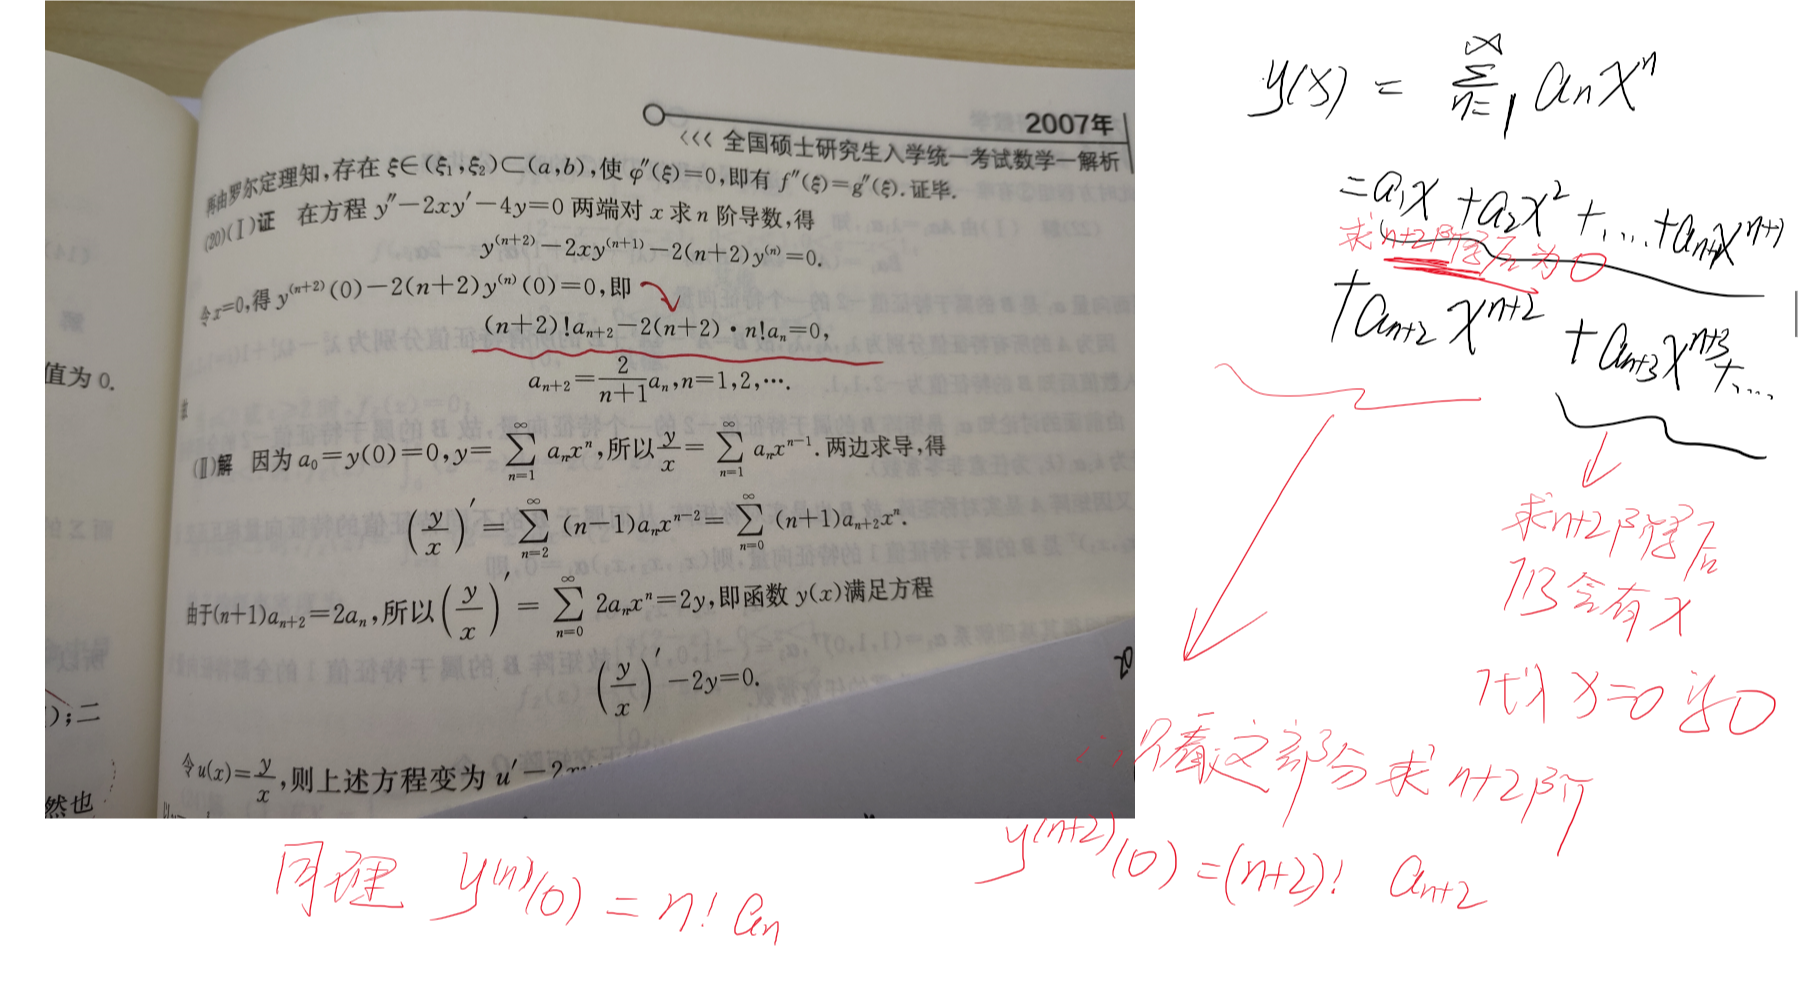 2007年
<<< 全国硕士研究生入学统一考试数学一解析
再由罗尔定理知,存在 ξ∈(ξ₁,ξ₂)⊂(a,b),使 φ″(ξ)=0,即有 f″(ξ)=g″(ξ).证毕.
(20)(Ⅰ)证 在方程 y″−2xy′−4y=0 两端对 x 求 n 阶导数,得
y⁽ⁿ⁺²⁾−2xy⁽ⁿ⁺¹⁾−2(n+2)y⁽ⁿ⁾=0.
令x=0,得 y⁽ⁿ⁺²⁾(0)−2(n+2)y⁽ⁿ⁾(0)=0,即
(n+2)!aₙ₊₂−2(n+2)·n!aₙ=0,
aₙ₊₂=2/(n+1)aₙ,n=1,2,⋯.
(Ⅱ)解 因为 a₀=y(0)=0,y=∑_{n=1}^{∞} aₙxⁿ,所以 y/x=∑_{n=1}^{∞} aₙxⁿ⁻¹.两边求导,得
(y/x)′=∑_{n=2}^{∞}(n−1)aₙxⁿ⁻²=∑_{n=0}^{∞}(n+1)aₙ₊₂xⁿ.
由于(n+1)aₙ₊₂=2aₙ,所以(y/x)′=∑_{n=0}^{∞}2aₙxⁿ=2y,即函数 y(x)满足方程
(y/x)′−2y=0.
令u(x)=y/x,则上述方程变为 u′−2x
值为 0.
);二
然也
20
y(x) = ∑_{n=1}^{∞} aₙxⁿ
=a₁x+a₂x²+....+aₙ₊₁xⁿ⁺¹
求n+2阶导后为0
+aₙ₊₂xⁿ⁺² +aₙ₊₃xⁿ⁺³+....
求n+2阶导后
仍含有x
代入 x=0 为0
∴只看这部分求n+2阶
y⁽ⁿ⁺²⁾(0)=(n+2)! aₙ₊₂
同理 y⁽ⁿ⁾(0)=n! aₙ